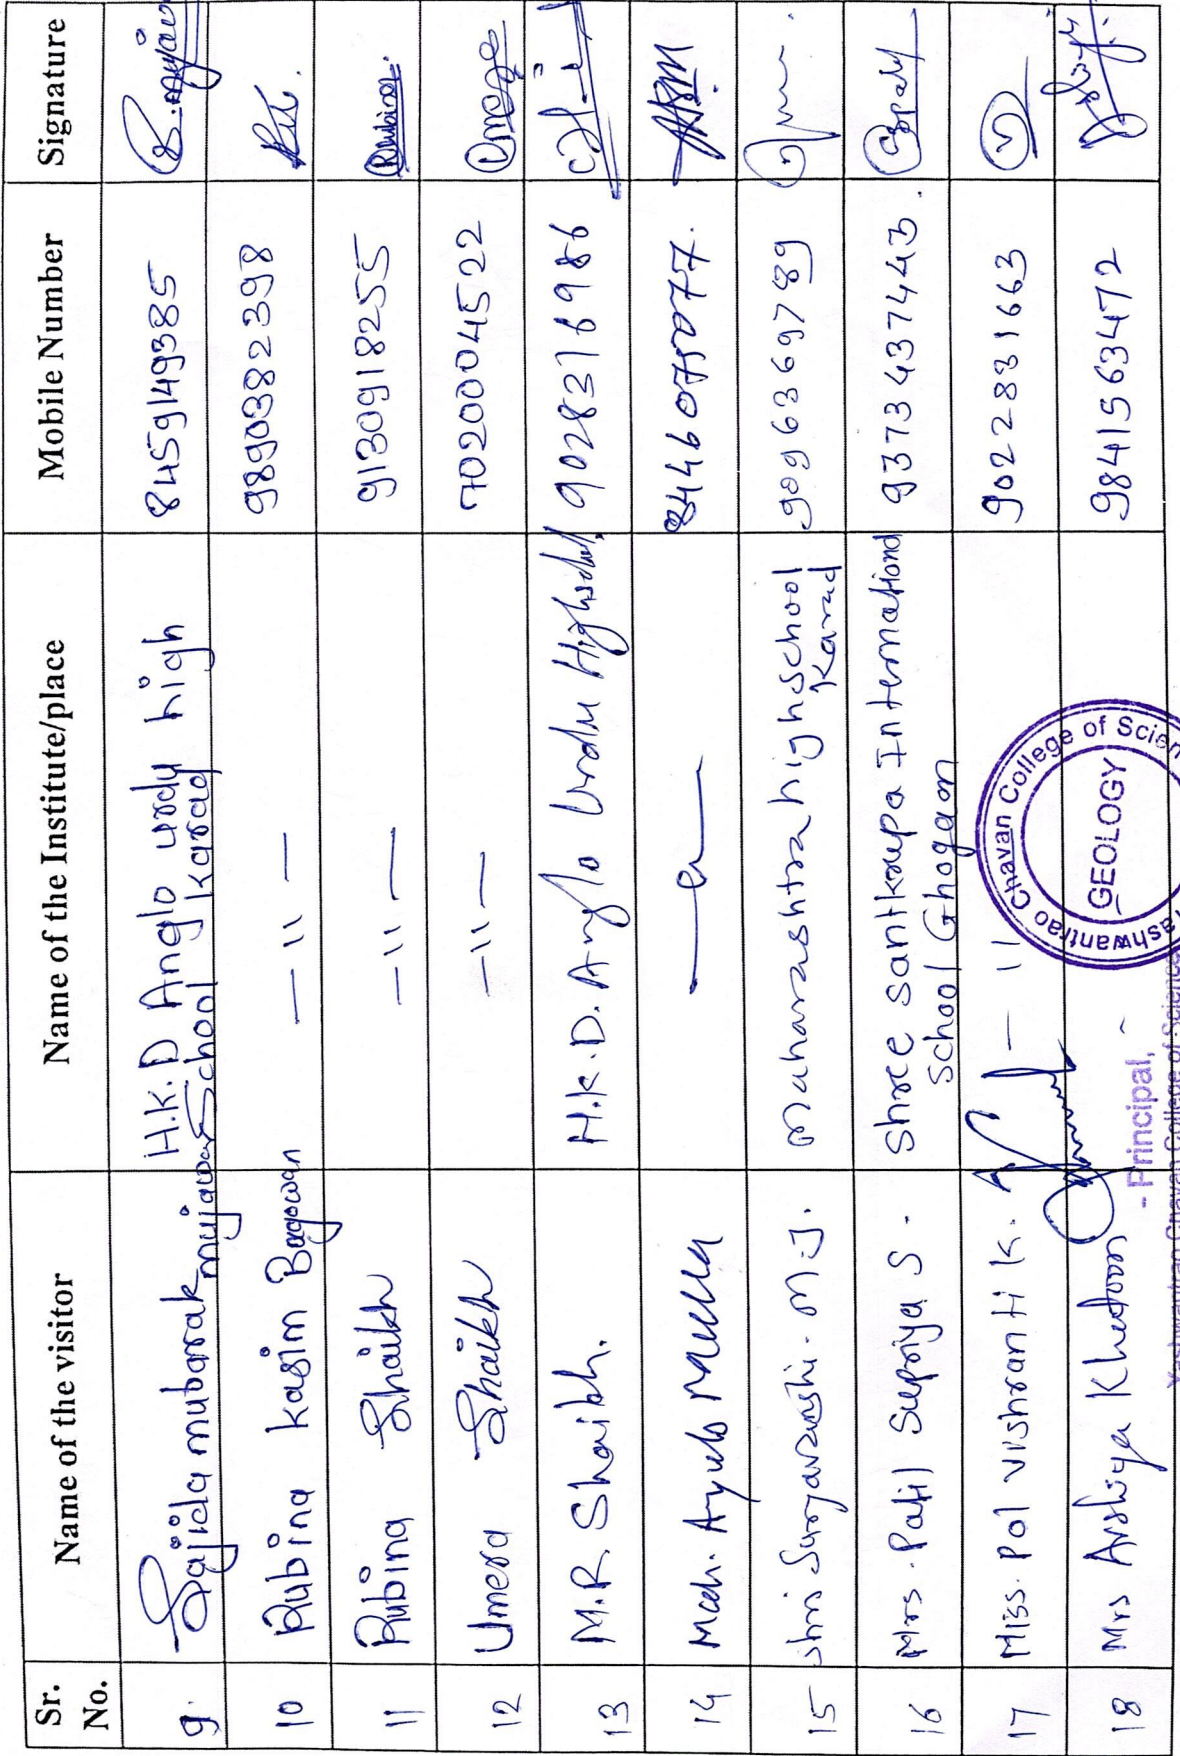 Sr. No. Name of the visitor Name of the Institute/place Mobile Number Signature
9. Sajida mubarak mujawar H.K.D Anglo urdu high School karad 8459149385 S.mujawar
10 Rubina kasim Bagwan — 11 — 9890382398
11 Rubina Shaikh — 11 — 9130918255 Rubina.
12 Umera Shaikh — 11 — 7020004522
13 M.R. Shaikh. H.K.D. Anglo Urdu Highschool, 9028316986
14 Moh. Ayub Mulla 8446075077.
15 Shri Suryavanshi. M.J. Maharashtra high school Karad 9096369789
16 Mrs. Patil Supriya S. Shree Santkrupa International School Ghogaon 9373437443.
17 Miss. Pol Vishranti K. — 11 9022831663
18 Mrs Arshiya Khatoon 9841563472
Yashwantrao Chavan College of Scien
GEOLOGY
- Principal,
Yashwantrao Chavan College of Science